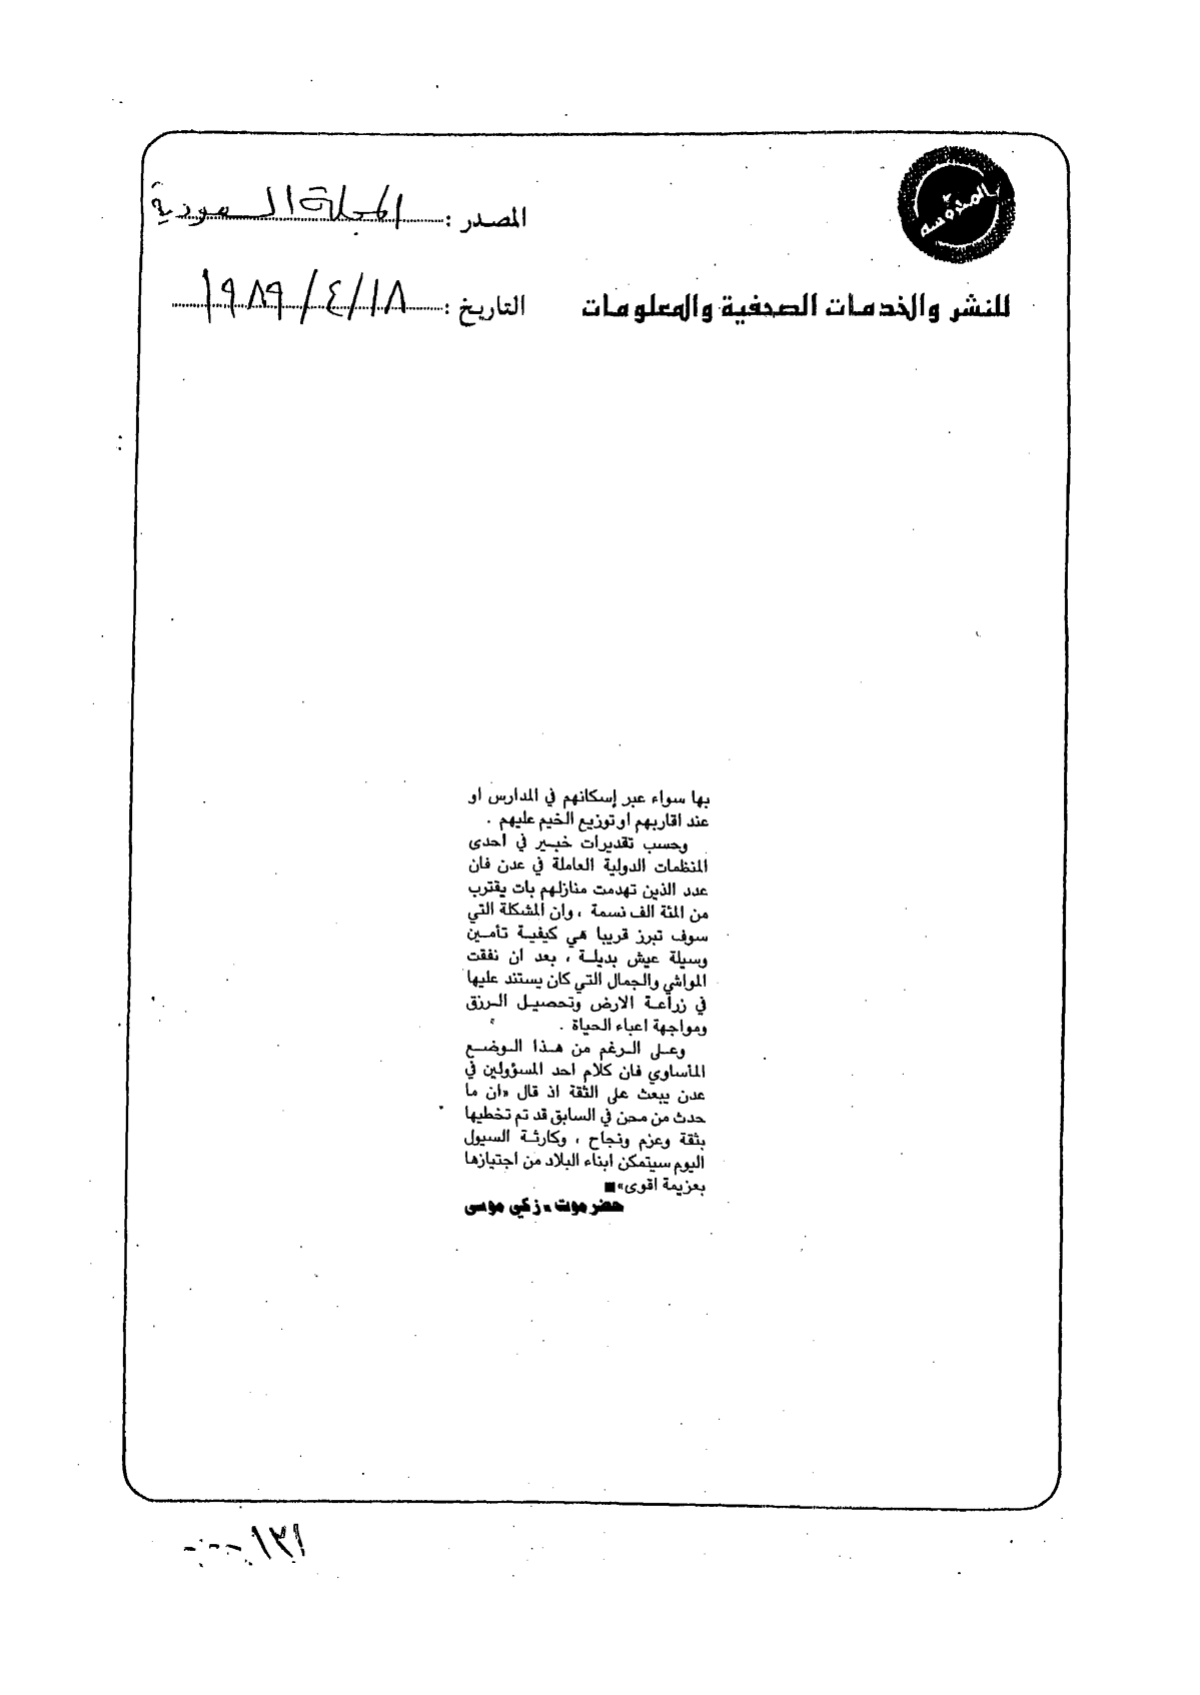 المحروسة
المصدر : المجلة السعودية
للنشر والخدمات الصحفية والمعلومات
التاريخ : ١٩٨٩/٤/١٨
بها سواء عبر إسكانهم في المدارس او
عند اقاربهم او توزيع الخيم عليهم .
وحسب تقديرات خبير في احدى
المنظمات الدولية العاملة في عدن فان
عدد الذين تهدمت منازلهم بات يقترب
من المئة الف نسمة ، وان المشكلة التي
سوف تبرز قريبا هي كيفية تأمين
وسيلة عيش بديلة ، بعد ان نفقت
المواشي والجمال التي كان يستند عليها
في زراعة الارض وتحصيل الرزق
ومواجهة اعباء الحياة .
وعلى الرغم من هذا الوضع
المأساوي فان كلام احد المسؤولين في
عدن يبعث على الثقة اذ قال «ان ما
حدث من محن في السابق قد تم تخطيها
بثقة وعزم ونجاح ، وكارثة السيول
اليوم سيتمكن ابناء البلاد من اجتيازها
بعزيمة اقوى»■
حضرموت - زكي موسى